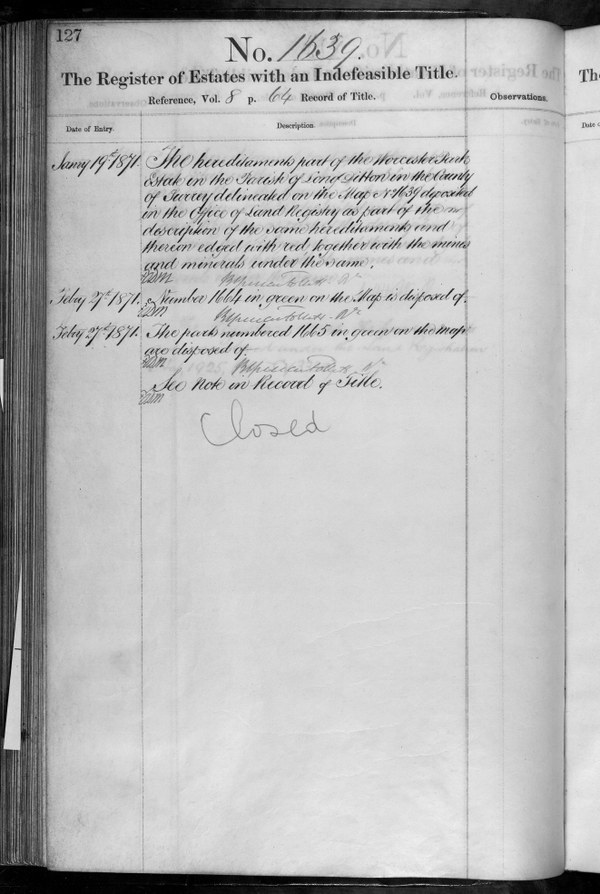 127
No. 1639.
The Register of Estates with an Indefeasible Title.
Reference, Vol. 8 p. 64 Record of Title.
Observations.
Date of Entry.
Description.
Janry 19th 1871. The hereditaments part of the Worcester Park
Estate in the Parish of Long Ditton in the County
of Surrey delineated on the Map No 1639 deposited
in the Office of Land Registry as part of the
description of the same hereditaments and
thereon edged with red together with the mines
and minerals under the same.
Febry 27th 1871. Number 1664 in green on the Map is disposed of.
Febry 27th 1871. The parts numbered 1665 in green on the map
are disposed of.
See Note in Record of Title.
Closed